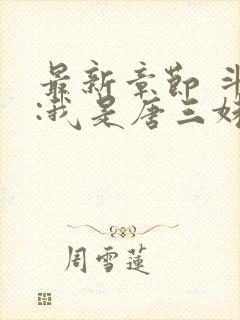 最新章節 斗
:我是唐三妹
周雪蓮